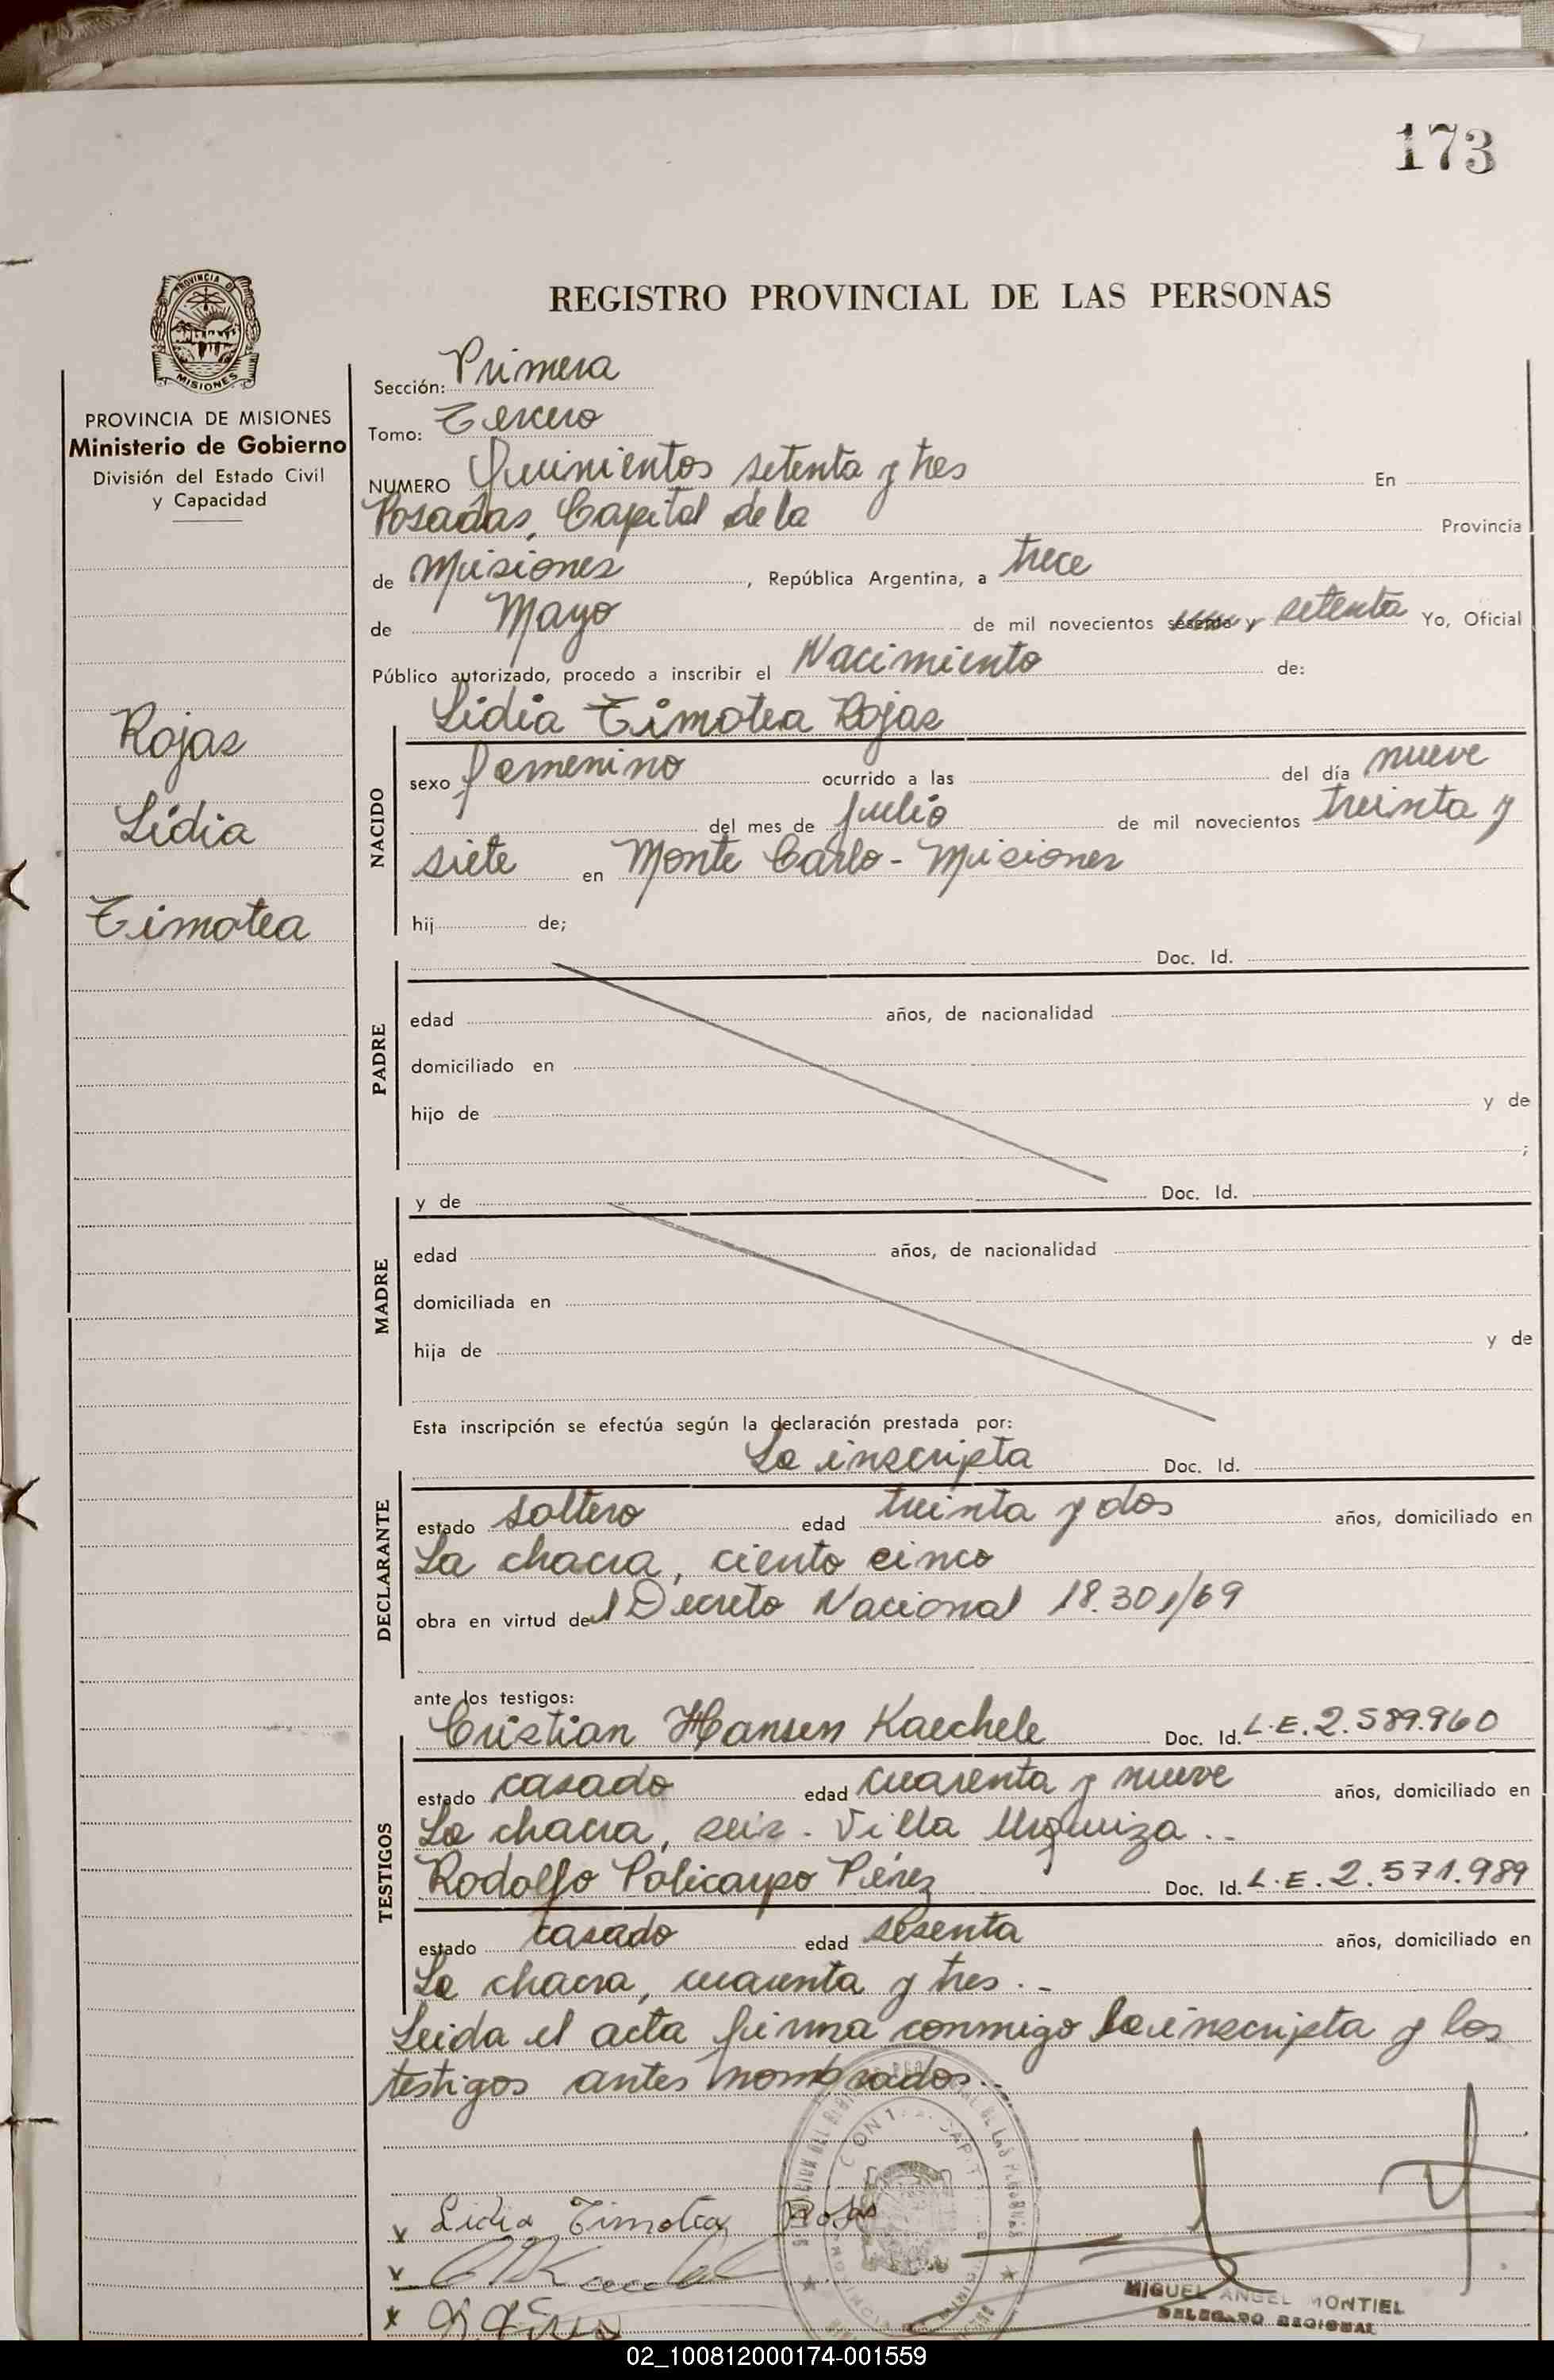 173
PROVINCIA DE
MISIONES
REGISTRO PROVINCIAL DE LAS PERSONAS
PROVINCIA DE MISIONES
Ministerio de Gobierno
División del Estado Civil
y Capacidad
Rojas
Lidia
Timotea
Sección: Primera
Tomo: Tercero
NUMERO Quinientos setenta y tres En
Posadas, Capital de la Provincia
de Misiones, República Argentina, a trece
de Mayo de mil novecientos sesenta y setenta Yo, Oficial
Público autorizado, procedo a inscribir el Nacimiento de:
Lidia Timotea Rojas
NACIDO
sexo femenino ocurrido a las del día nueve
del mes de Julio de mil novecientos treinta y
siete en Monte Carlo - Misiones
hij de;
PADRE
Doc. Id.
edad años, de nacionalidad
domiciliado en
hijo de y de
;
MADRE
y de Doc. Id.
edad años, de nacionalidad
domiciliada en
hija de y de
Esta inscripción se efectúa según la declaración prestada por:
DECLARANTE
La inscripta Doc. Id.
estado soltero edad treinta y dos años, domiciliado en
La chacra, ciento cinco
obra en virtud del Decreto Nacional 18.301/69
ante los testigos:
TESTIGOS
Cristian Hansen Kaechele Doc. Id. L.E. 2.589.960
estado casado edad cuarenta y nueve años, domiciliado en
La chacra, seis. Villa Urquiza.-
Rodolfo Policarpo Pérez Doc. Id. L.E. 2.571.989
estado casado edad sesenta años, domiciliado en
La chacra, cuarenta y tres.-
Leida el acta firma conmigo la inscripta y los
testigos antes nombrados.-
Lidia Timotea Rojas
MIGUEL ANGEL MONTIEL
DELEGADO REGIONAL
02_100812000174-001559